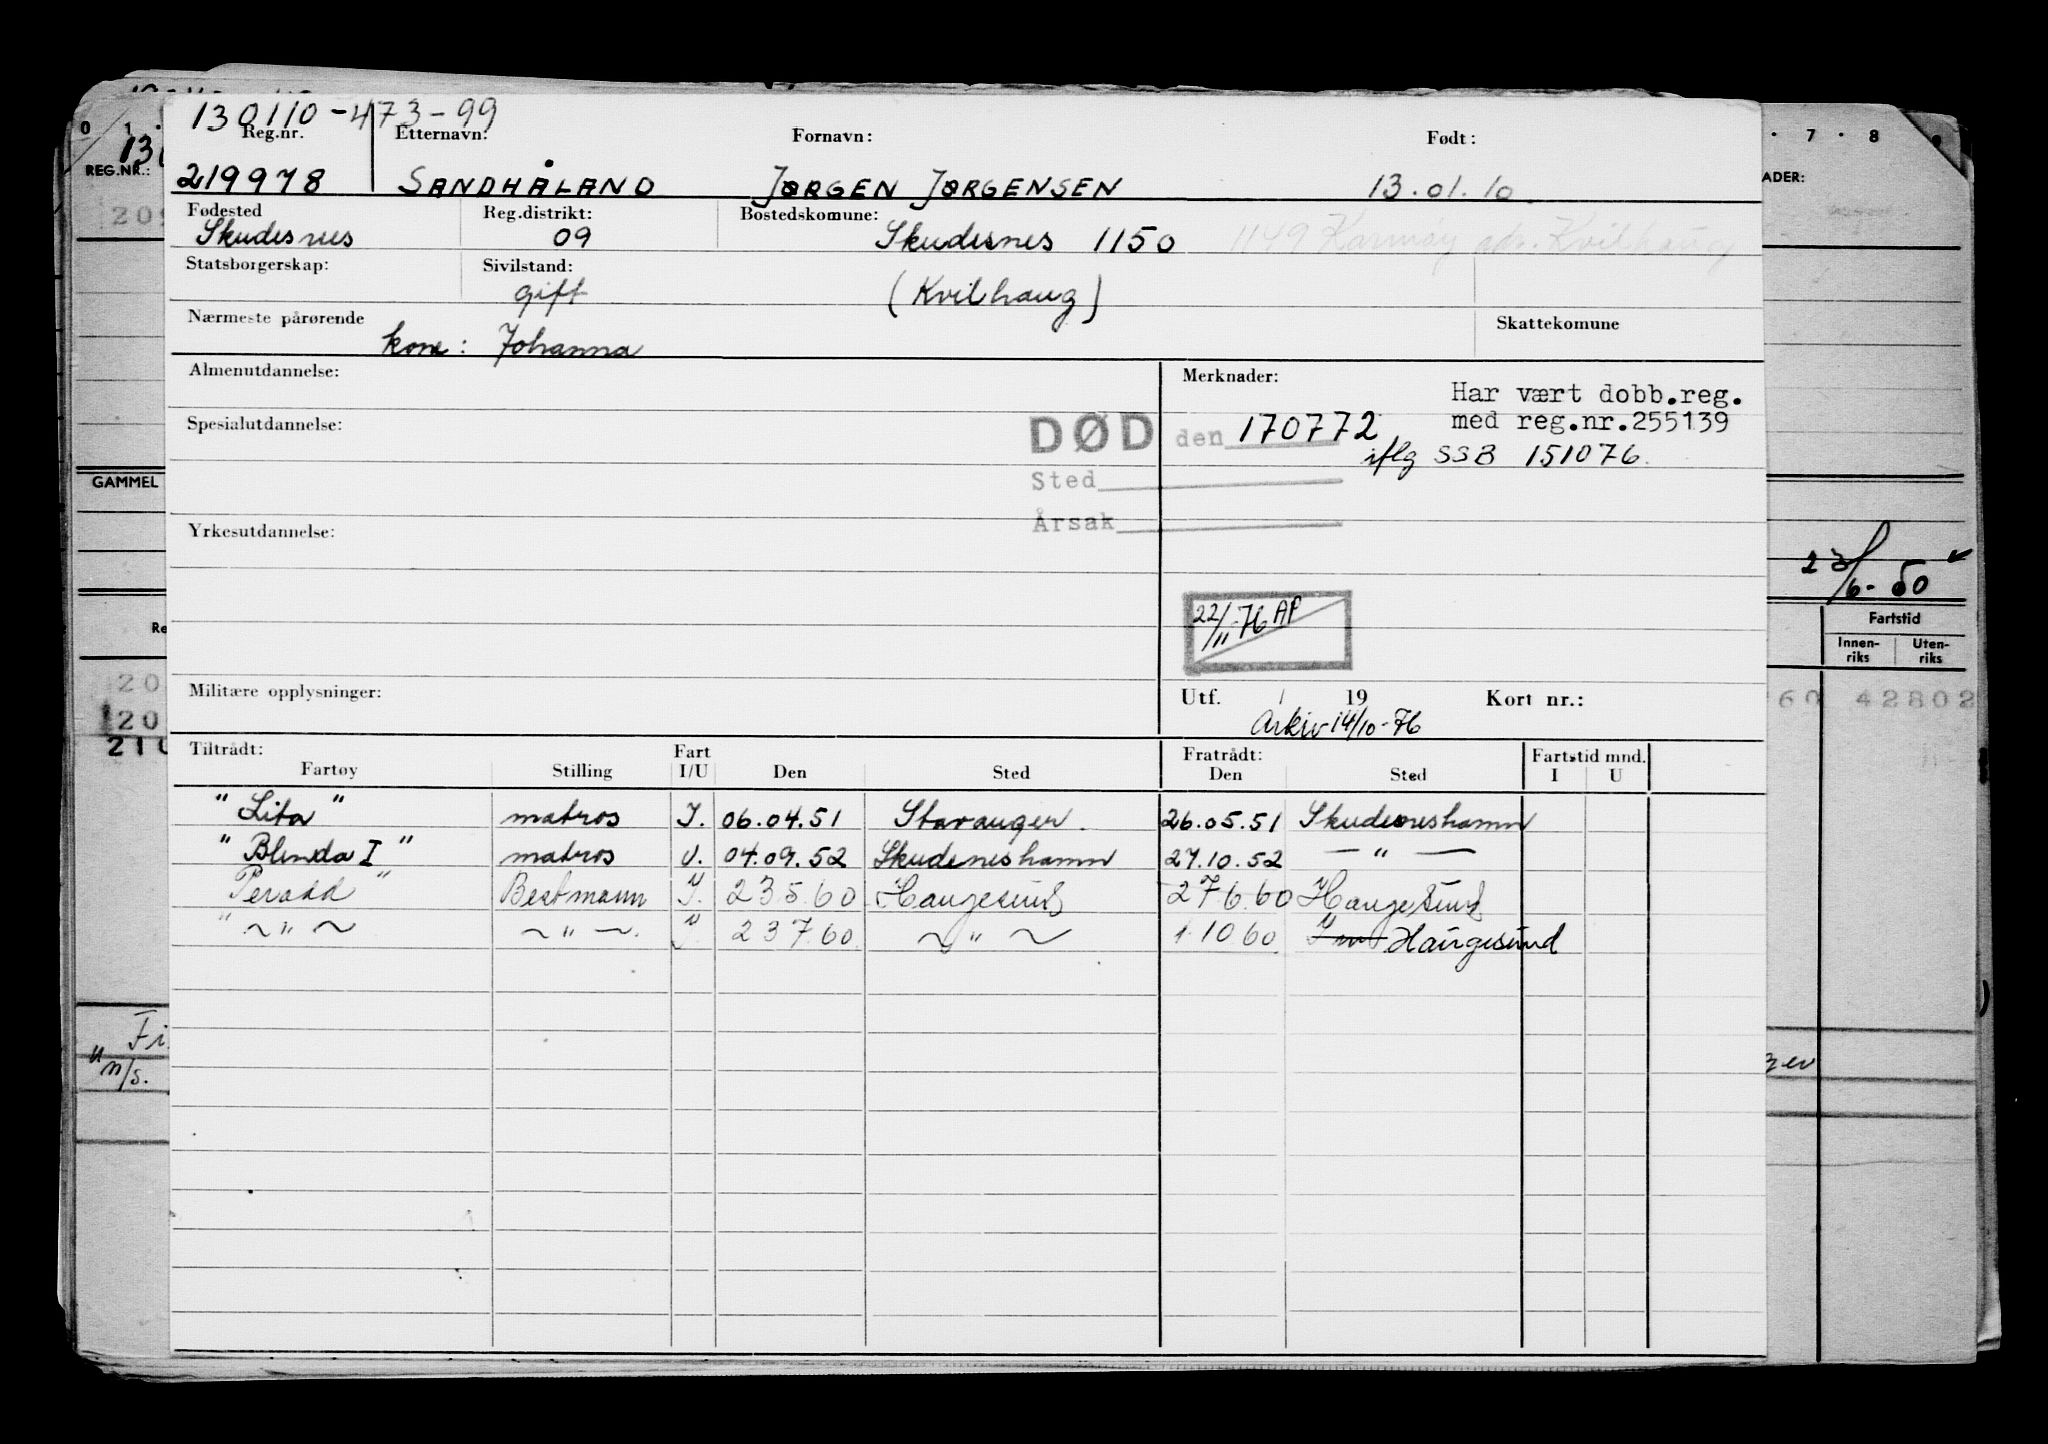 130110-473-99
Reg.nr. Etternavn: Fornavn: Født:
219978 SANDHÅLAND JØRGEN JØRGENSEN 13.01.10.
Fødested Reg.distrikt: Bostedskomune:
Skudesnes 09 Skudesnes 1150 1149 Karmøy adr. Kvilhaug
Statsborgerskap: Sivilstand:
gift (Kvilhaug)
Nærmeste pårørende Skattekomune
kone: Johanna
Almenutdannelse: Merknader: Har vært dobb.reg.
Spesialutdannelse: DØD den 170772 med reg.nr.255139
iflg SSB 151076.
Sted
Årsak
Yrkesutdannelse:
22/11-76 AP
Militære opplysninger: Utf. / 19 Kort nr.:
Arkiv 14/10-76
Tiltrådt: Fart Fratrådt: Fartstid mnd.
Fartøy Stilling I/U Den Sted Den Sted I U
"Lita" matros I. 06.04.51 Stavanger. 26.05.51 Skudesneshamn
"Blenda I" matros U. 04.09.52 Skudeneshamn 27.10.52 — " —
Peradd " Bestmann I. 23.5.60 Haugesund 27.6.60 Haugesund
" ~ " ~ ~ " ~. " 23 7 60 ~ " ~ 1.10 60 Haugesund
0 1 .
REG.NR.:
GAMMEL
20
20
210
Fi
"m/s.
. 7 . 8 . 9
ADER:
23/6-50
Fartstid
Innen-riks Uten-riks
60 42802